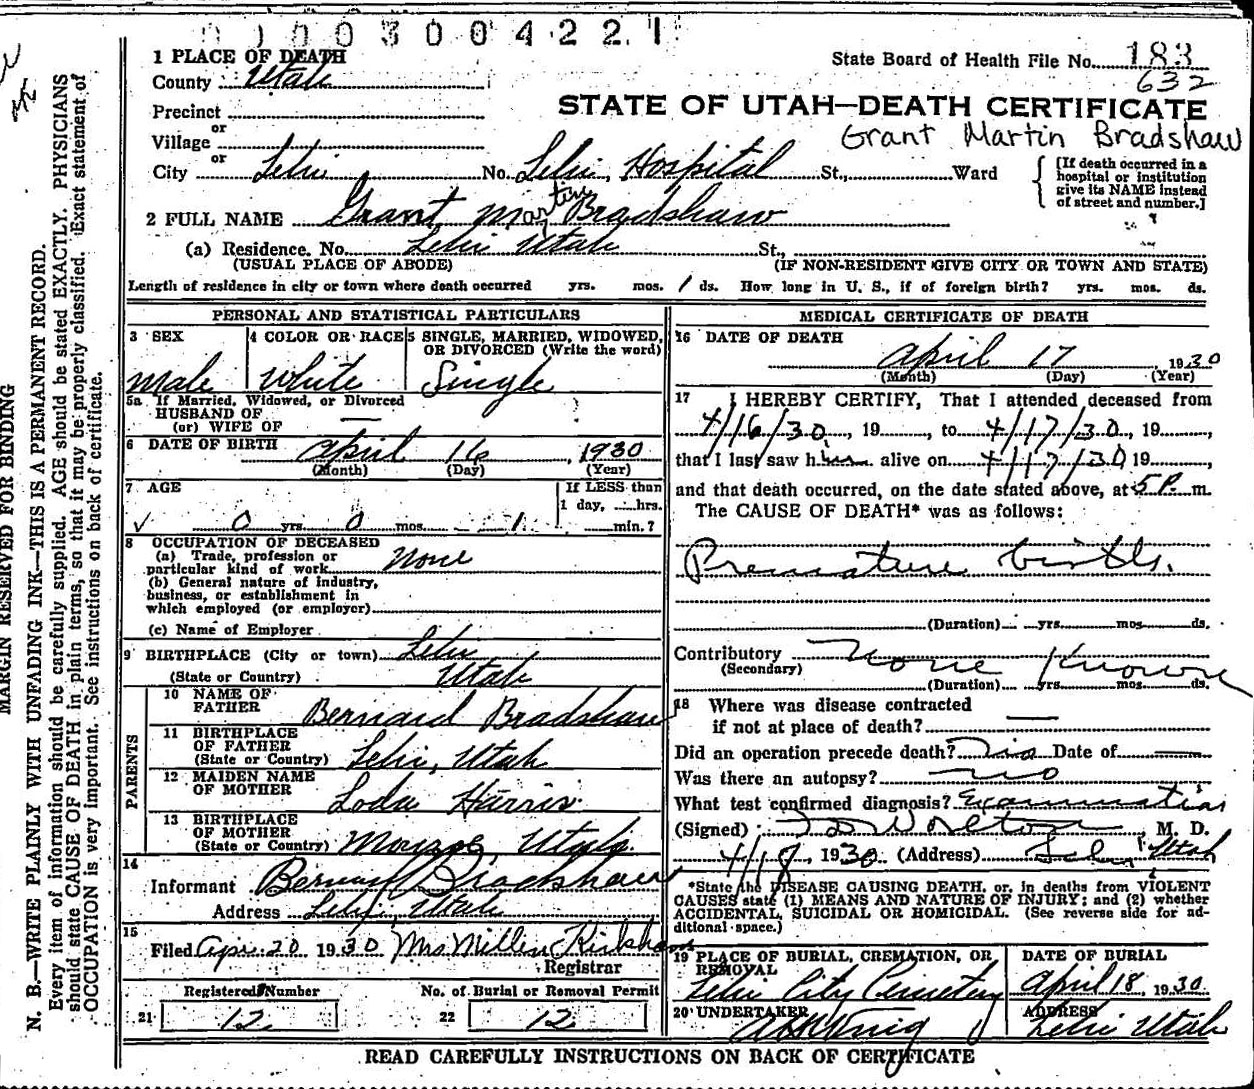 00003004221
1 PLACE OF DEATH State Board of Health File No. 183
County Utah 632
Precinct STATE OF UTAH—DEATH CERTIFICATE
or Grant Martin Bradshaw
Village
or
City Lehi No. Lehi, Hospital St., Ward [If death occurred in a hospital or institution give its NAME instead of street and number.]
2 FULL NAME Grant Martin Bradshaw
(a) Residence. No. Lehi Utah St.,
(USUAL PLACE OF ABODE) (IF NON-RESIDENT GIVE CITY OR TOWN AND STATE)
Length of residence in city or town where death occurred yrs. mos. 1 ds. How long in U. S., if of foreign birth? yrs. mos. ds.
PERSONAL AND STATISTICAL PARTICULARS
3 SEX 4 COLOR OR RACE 5 SINGLE, MARRIED, WIDOWED,
OR DIVORCED (Write the word)
Male White Single
5a If Married, Widowed, or Divorced
HUSBAND OF
(or) WIFE OF —
6 DATE OF BIRTH April 16, 1930
(Month) (Day) (Year)
7 AGE If LESS than
1 day, ......hrs.
0 yrs. 0 mos. 1 ......min.?
8 OCCUPATION OF DECEASED
(a) Trade, profession or
particular kind of work None
(b) General nature of industry,
business, or establishment in
which employed (or employer)
(c) Name of Employer
9 BIRTHPLACE (City or town) Lehi
(State or Country) Utah
PARENTS
10 NAME OF
FATHER Bernard Bradshaw
11 BIRTHPLACE
OF FATHER
(State or Country) Lehi, Utah
12 MAIDEN NAME
OF MOTHER Loda Harris
13 BIRTHPLACE
OF MOTHER
(State or Country) Monroe, Utah
14
Informant Bernard Bradshaw
Address Lehi, Utah
15
Filed Apr. 20 1930 Mrs Kirkham
Registrar
Registered Number No. of Burial or Removal Permit
21 12 22 12
MEDICAL CERTIFICATE OF DEATH
16 DATE OF DEATH
April 17 1930
(Month) (Day) (Year)
17 I HEREBY CERTIFY, That I attended deceased from
4/16/30, 19......, to 4/17/30, 19......,
that I last saw him alive on 4/17/30, 19......,
and that death occurred, on the date stated above, at 5P. m.
The CAUSE OF DEATH* was as follows:
Premature birth.
(Duration) yrs. mos. ds.
Contributory None Known
(Secondary)
(Duration) yrs. mos. ds.
18 Where was disease contracted
if not at place of death? —
Did an operation precede death? No Date of —
Was there an autopsy? no
What test confirmed diagnosis? Examination
(Signed) Worlton, M. D.
4/18, 1930 (Address) Lehi Utah
*State the DISEASE CAUSING DEATH, or, in deaths from VIOLENT
CAUSES state (1) MEANS AND NATURE OF INJURY; and (2) whether
ACCIDENTAL, SUICIDAL OR HOMICIDAL. (See reverse side for ad-
ditional space.)
19 PLACE OF BURIAL, CREMATION, OR
REMOVAL
Lehi City Cemetery
DATE OF BURIAL
April 18, 1930
20 UNDERTAKER
ADDRESS
Lehi Utah
READ CAREFULLY INSTRUCTIONS ON BACK OF CERTIFICATE
MARGIN RESERVED FOR BINDING
N. B.—WRITE PLAINLY WITH UNFADING INK—THIS IS A PERMANENT RECORD.
Every item of information should be carefully supplied. AGE should be stated EXACTLY. PHYSICIANS
should state CAUSE OF DEATH in plain terms, so that it may be properly classified. Exact statement of
OCCUPATION is very important. See instructions on back of certificate.